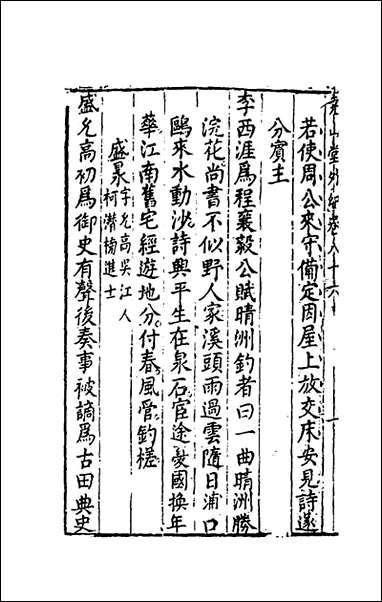 堯山堂外紀卷八十六 一
若使周公來守備定因屋上放交床安見詩遂
分賓主
李西涯爲程襄毅公賦晴洲釣者曰一曲晴洲勝
浣花尚書不似野人家溪頭雨過雲隨日浦口
鷗來水動沙詩興平生在泉石宦途憂國換年
華江南舊宅經遊地分付春風管釣槎
盛昶字允高吳江人
柯潛榜進士
盛允高初爲御史有聲後奏事被謫爲古田典史